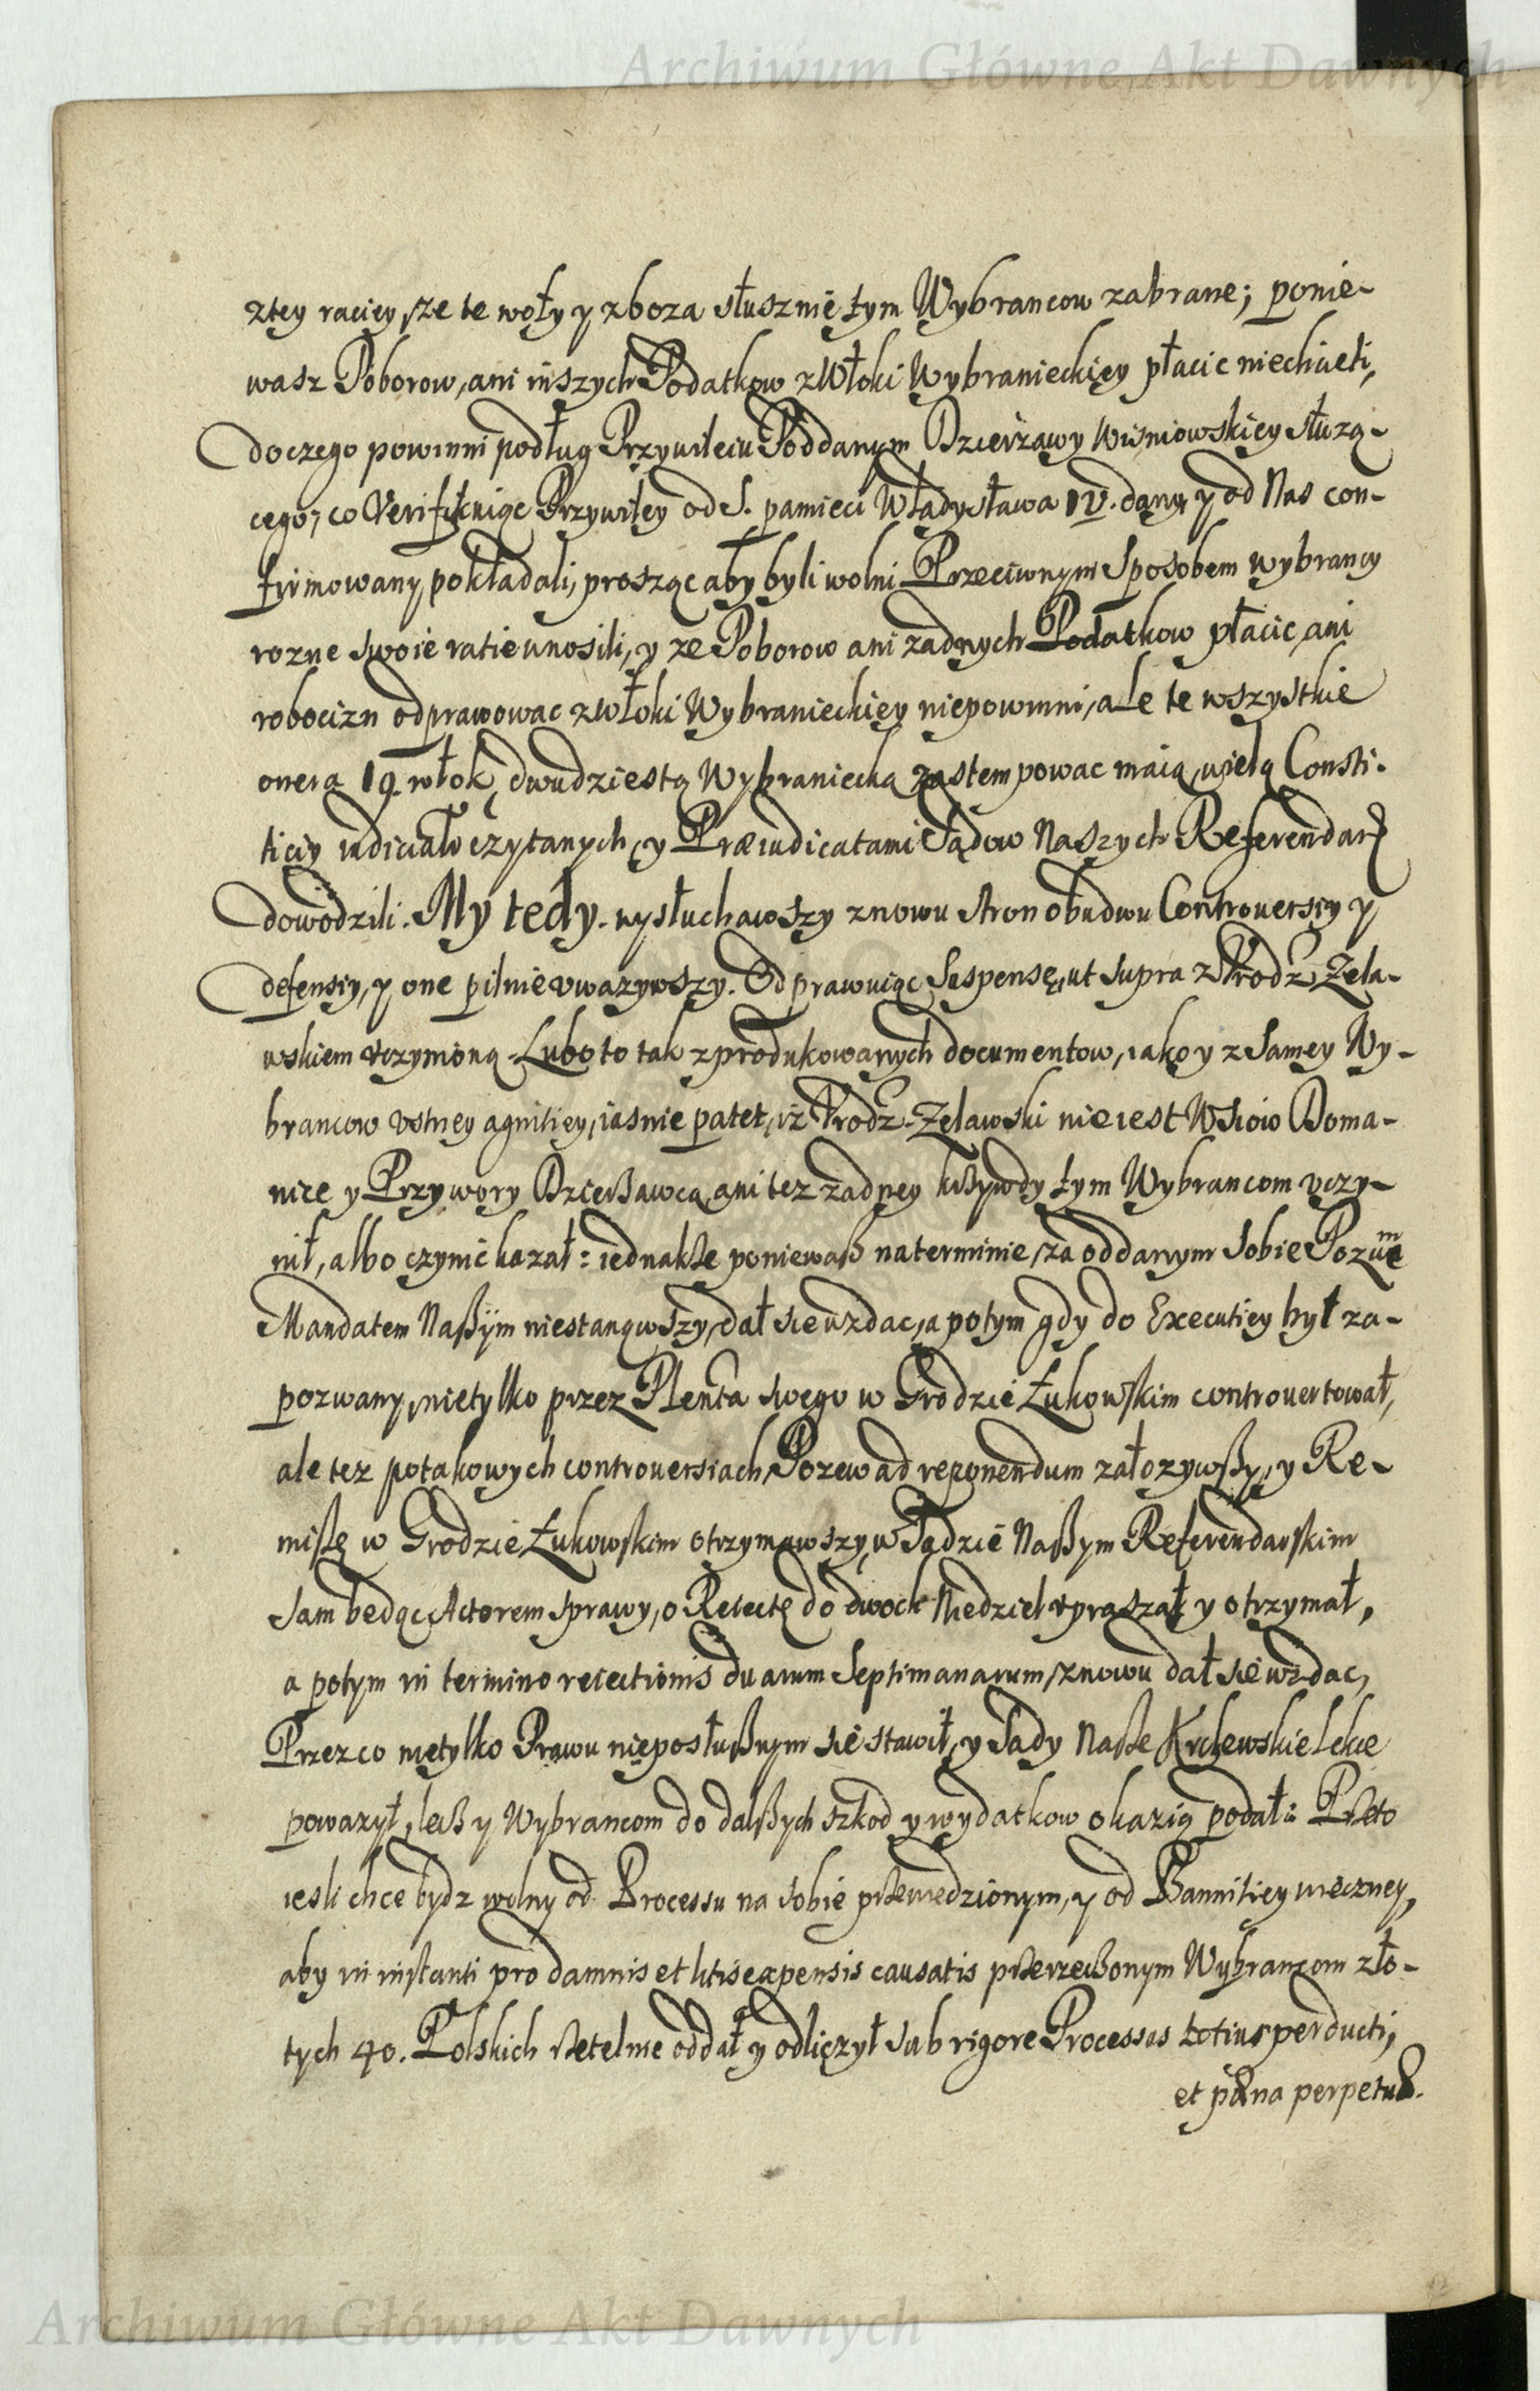 Archiwum Główne Akt Dawnych
ztey raciey, ze te woły y zboza słusznie tym Wybrancow zabrane; ponie-
wasz Poborow, ani inszych Podatkow z Włoki Wybranieckiey płacic niechcieli,
do czego powinni podług Przywileiu Poddanym Dzierzawy Wisniowskiey słuzą-
cego, co Verifikuiąc Przywiley od S. pamieci Władysława IV. dany y od Nas con-
firmowany pokładali, prosząc aby byli wolni. Przeciwnym Sposobem wybrancy
rozne swoie ratie unosili, y ze Poborow ani zadnych Podatkow płacic, ani
robocizn odprawowac z włoki Wybranieckiey niepowinni, ale te wszystkie
onera 19 włok, dwudziestą Wybraniecką zastempowac maią, wielą Consti-
ticiy czytanych, y Præiudicatami Sądow Naszych Referendar:
dowodzili. My tedy. wysłuchawszy znowu stron obudwu Controuersiy y
defensiy, y one pilnie uwazywszy. Odprawuiąc Suspensę, ut supra z Urodz: Zela-
wskiem uczynioną. Lubo to tak z produkowanych documentow, iako y z Samey Wy-
brancow ustney agnitiey, iasnie patet, iz Urodz: Zelawski nie iest Wsiow Doma-
nice y Przywory Dzierßawcą, ani tez zadney krzywdy tym Wybrancom uczy-
nił, albo czynić kazał: iednakße poniewaß na terminie, za oddanym sobie Pozwem
Mandatem Naßym niestanąwszy, dał sie wzdac, a potym gdy do Executiey był za-
pozwany, nietylko przez Plenta swego w Grodzie Łukowskim controuertował,
ale tez po takowych controuersiach, Pozew ad reponendum załozywßy, y Re-
mißę w Grodzie Łukowskim otrzymawszy, w Sądzie Naßym Referendarskim
Sam bedąc Actorem sprawy, o Reiectę do dwoch Niedziel upraszał y otrzymał,
a potym in termino reiectionis duarum Septimanarum, znowu dał sie wzdac,
Przez co nietylko Prawu nieposłußnym sie stawił, y Sądy Naße Krolewskie lekce
powazył, leß y Wybrancom do dalßych szkod y wydatkow okazią podał: Przeto
iesli chce bydz wolny od Processu na sobie przewiedzionym, y od Bannitiey wieczney,
aby in instanti pro damnis et litis expensis causatis przerzeczonym Wybrancom zło-
tych 40. Polskich rzetelnie oddał y odliczył sub rigore Processus totius perducti,
et pæna perpetuæ.
Archiwum Główne Akt Dawnych